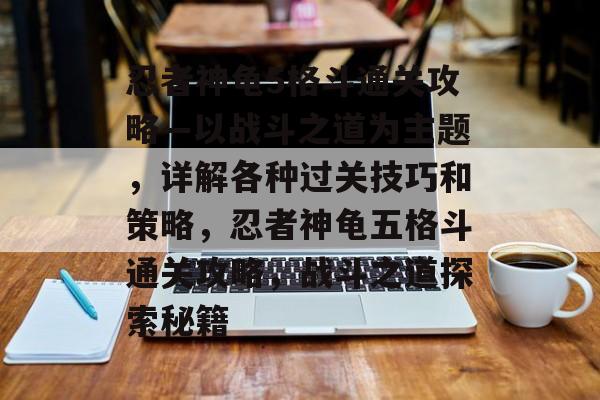 忍者神龟5格斗通关攻
略—以战斗之道为主题
，详解各种过关技巧和
策略，忍者神龟五格斗
通关攻略，战斗之道探
索秘籍